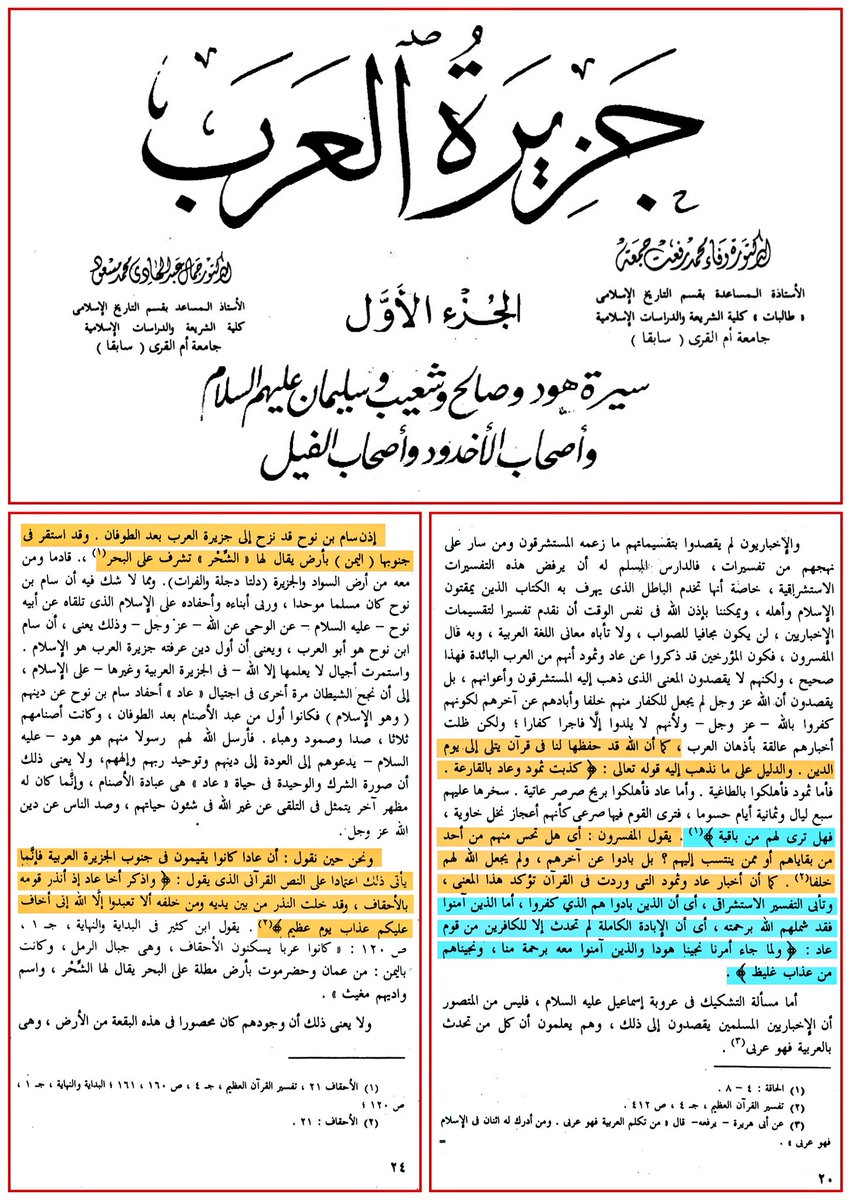 جزيرة العرب
الدكتورة وفاء محمد رفعت جمعة
الأستاذة المساعدة بقسم التاريخ الإسلامى
« طالبات » كلية الشريعة والدراسات الإسلامية
جامعة أم القرى ( سابقا )
الدكتور جمال عبد الهادى محمد مسعود
الأستاذ المساعد بقسم التاريخ الإسلامى
كلية الشريعة والدراسات الإسلامية
جامعة أم القرى ( سابقا )
الجُزء الأَوَّل
سيرة هود وصالح وشعيب وسليمان عليهم السلام
وأصحاب الأخدود وأصحاب الفيل
والإخباريون لم يقصدوا بتقسيماتهم ما زعمه المستشرقون ومن سار على
نهجهم من تفسيرات ، فالدارس المسلم له أن يرفض هذه التفسيرات
الاستشراقية ، خاصة أنها تخدم الباطل الذى يهرف به الكتاب الذين يمقتون
الإسلام وأهله ، ويمكننا بإذن الله فى نفس الوقت أن نقدم تفسيرا لتقسيمات
الإخباريين ، لن يكون مجافيا للصواب ، ولا تأباه معانى اللغة العربية ، وبه قال
المفسرون ، فكون المؤرخين قد ذكروا عن عاد وثمود أنهم من العرب البائدة فهذا
صحيح ، ولكنهم لا يقصدون المعنى الذى ذهب إليه المستشرقون وأعوانهم ، بل
يقصدون أن الله عز وجل لم يجعل للكفار منهم خلفا وأبادهم عن آخرهم لكونهم
كفروا بالله – عز وجل – ولأنهم لا يلدوا إلَّا فاجرا كفارا ؛ ولكن ظلت
أخبارهم عالقة بأذهان العرب ، كما أن الله قد حفظها لنا فى قرآن يتلى إلى يوم
الدين . والدليل على ما نذهب إليه قوله تعالى : ﴿ كذبت ثمود وعاد بالقارعة .
فأما ثمود فأهلكوا بالطاغية . وأما عاد فأهلكوا بريح صرصر عاتية . سخرها عليهم
سبع ليال وثمانية أيام حسوما ، فترى القوم فيها صرعى كأنهم أعجاز نخل خاوية ،
فهل ترى لهم من باقية ﴾(١) . يقول المفسرون : أى هل تحس منهم من أحد
من بقاياهم أو ممن ينتسب إليهم ؟ بل بادوا عن آخرهم ، ولم يجعل الله لهم
خلفا(٢) . كما أن أخبار عاد وثمود التى وردت فى القرآن تؤكد هذا المعنى ،
وتأبى التفسير الاستشراقى ، أى أن الذين بادوا هم الذي كفروا ، أما الذين آمنوا
فقد شملهم الله برحمته ، أى أن الإبادة الكاملة لم تحدث إلا للكافرين من قوم
عاد : ﴿ ولما جاء أمرنا نجينا هودا والذين آمنوا معه برحمة منا ، ونجيناهم
من عذاب غليظ ﴾ .
أما مسألة التشكيك فى عروبة إسماعيل عليه السلام ، فليس من المتصور
أن الإخباريين المسلمين يقصدون إلى ذلك ، وهم يعلمون أن كل من تحدث
بالعربية فهو عربى(٣) .
(١) الحاقة : ٤ – ٨ .
(٢) تفسير القرآن العظيم ، جـ ٤ ، ص ٤١٢ .
(٣) عن أبى هريرة – يرفعه – قال « من تكلم العربية فهو عربى . ومن أدرك له اثنان فى الإسلام
فهو عربى » .
٢٠
إذن سام بن نوح قد نزح إلى جزيرة العرب بعد الطوفان . وقد استقر فى
جنوبها ( اليمن ) بأرض يقال لها « الشِّحْر » تشرف على البحر(١) ، قادما ومن
معه من أرض السواد والجزيرة (دلتا دجلة والفرات). ومما لا شك فيه أن سام بن
نوح كان مسلما موحدا ، وربى أبناءه وأحفاده على الإسلام الذى تلقاه عن أبيه
نوح – عليه السلام – عن الوحى عن الله – عز وجل – وذلك يعنى ، أن سام
ابن نوح هو أبو العرب ، ويعنى أن أول دين عرفته جزيرة العرب هو الإسلام .
واستمرت أجيال لا يعلمها إلا الله – فى الجزيرة العربية وغيرها – على الإسلام ،
إلى أن نجح الشيطان مرة أخرى فى اجتيال « عاد » أحفاد سام بن نوح عن دينهم
( وهو الإسلام ) فكانوا أول من عبد الأصنام بعد الطوفان ، وكانت أصنامهم
ثلاثا ، صدا وصمود وهباء . فأرسل الله لهم رسولا منهم هو هود – عليه
السلام – يدعوهم إلى العودة إلى دينهم وتوحيد ربهم وإلههم، ولا يعنى ذلك
أن صورة الشرك والوحيدة فى حياة « عاد » هى عبادة الأصنام ، وإنَّما كان له
مظهر آخر يتمثل فى التلقى عن غير الله فى شئون حياتهم ، وصد الناس عن دين
الله عز وجل .
ونحن حين نقول : أن عادا كانوا يقيمون فى جنوب الجزيرة العربية فإنَّما
يأتى ذلك اعتمادا على النص القرآنى الذى يقول : ﴿ واذكر أخا عاد إذ أنذر قومه
بالأحقاف ، وقد خلت النذر من بين يديه ومن خلفه ألا تعبدوا إلَّا الله إنى أخاف
عليكم عذاب يوم عظيم ﴾(٢) . يقول ابن كثير فى البداية والنهاية ، جـ ١ ،
ص ١٢٠ : « كانوا عربا يسكنون الأحقاف ، وهى جبال الرمل ، وكانت
باليمن : من عمان وحضرموت بأرض مطلة على البحر يقال لها الشِّحْر ، واسم
واديهم مغيث » .
ولا يعنى ذلك أن وجودهم كان محصورا فى هذه البقعة من الأرض ، وهى
(١) الأحقاف ٢١ ، تفسير القرآن العظيم ، جـ ٤ ، ص ١٦٠ ، ١٦١ ؛ البداية والنهاية ، جـ ١ ،
ص ١٢٠ ؛
(٢) الأحقاف : ٢١ .
٢٤